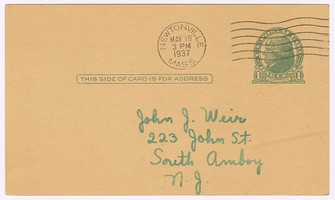 NEWTONVILLE
MAY 18
3 PM
1937
MASS.
THIS SIDE OF CARD IS FOR ADDRESS
John J. Weir
223 John St.
South Amboy
N. J.